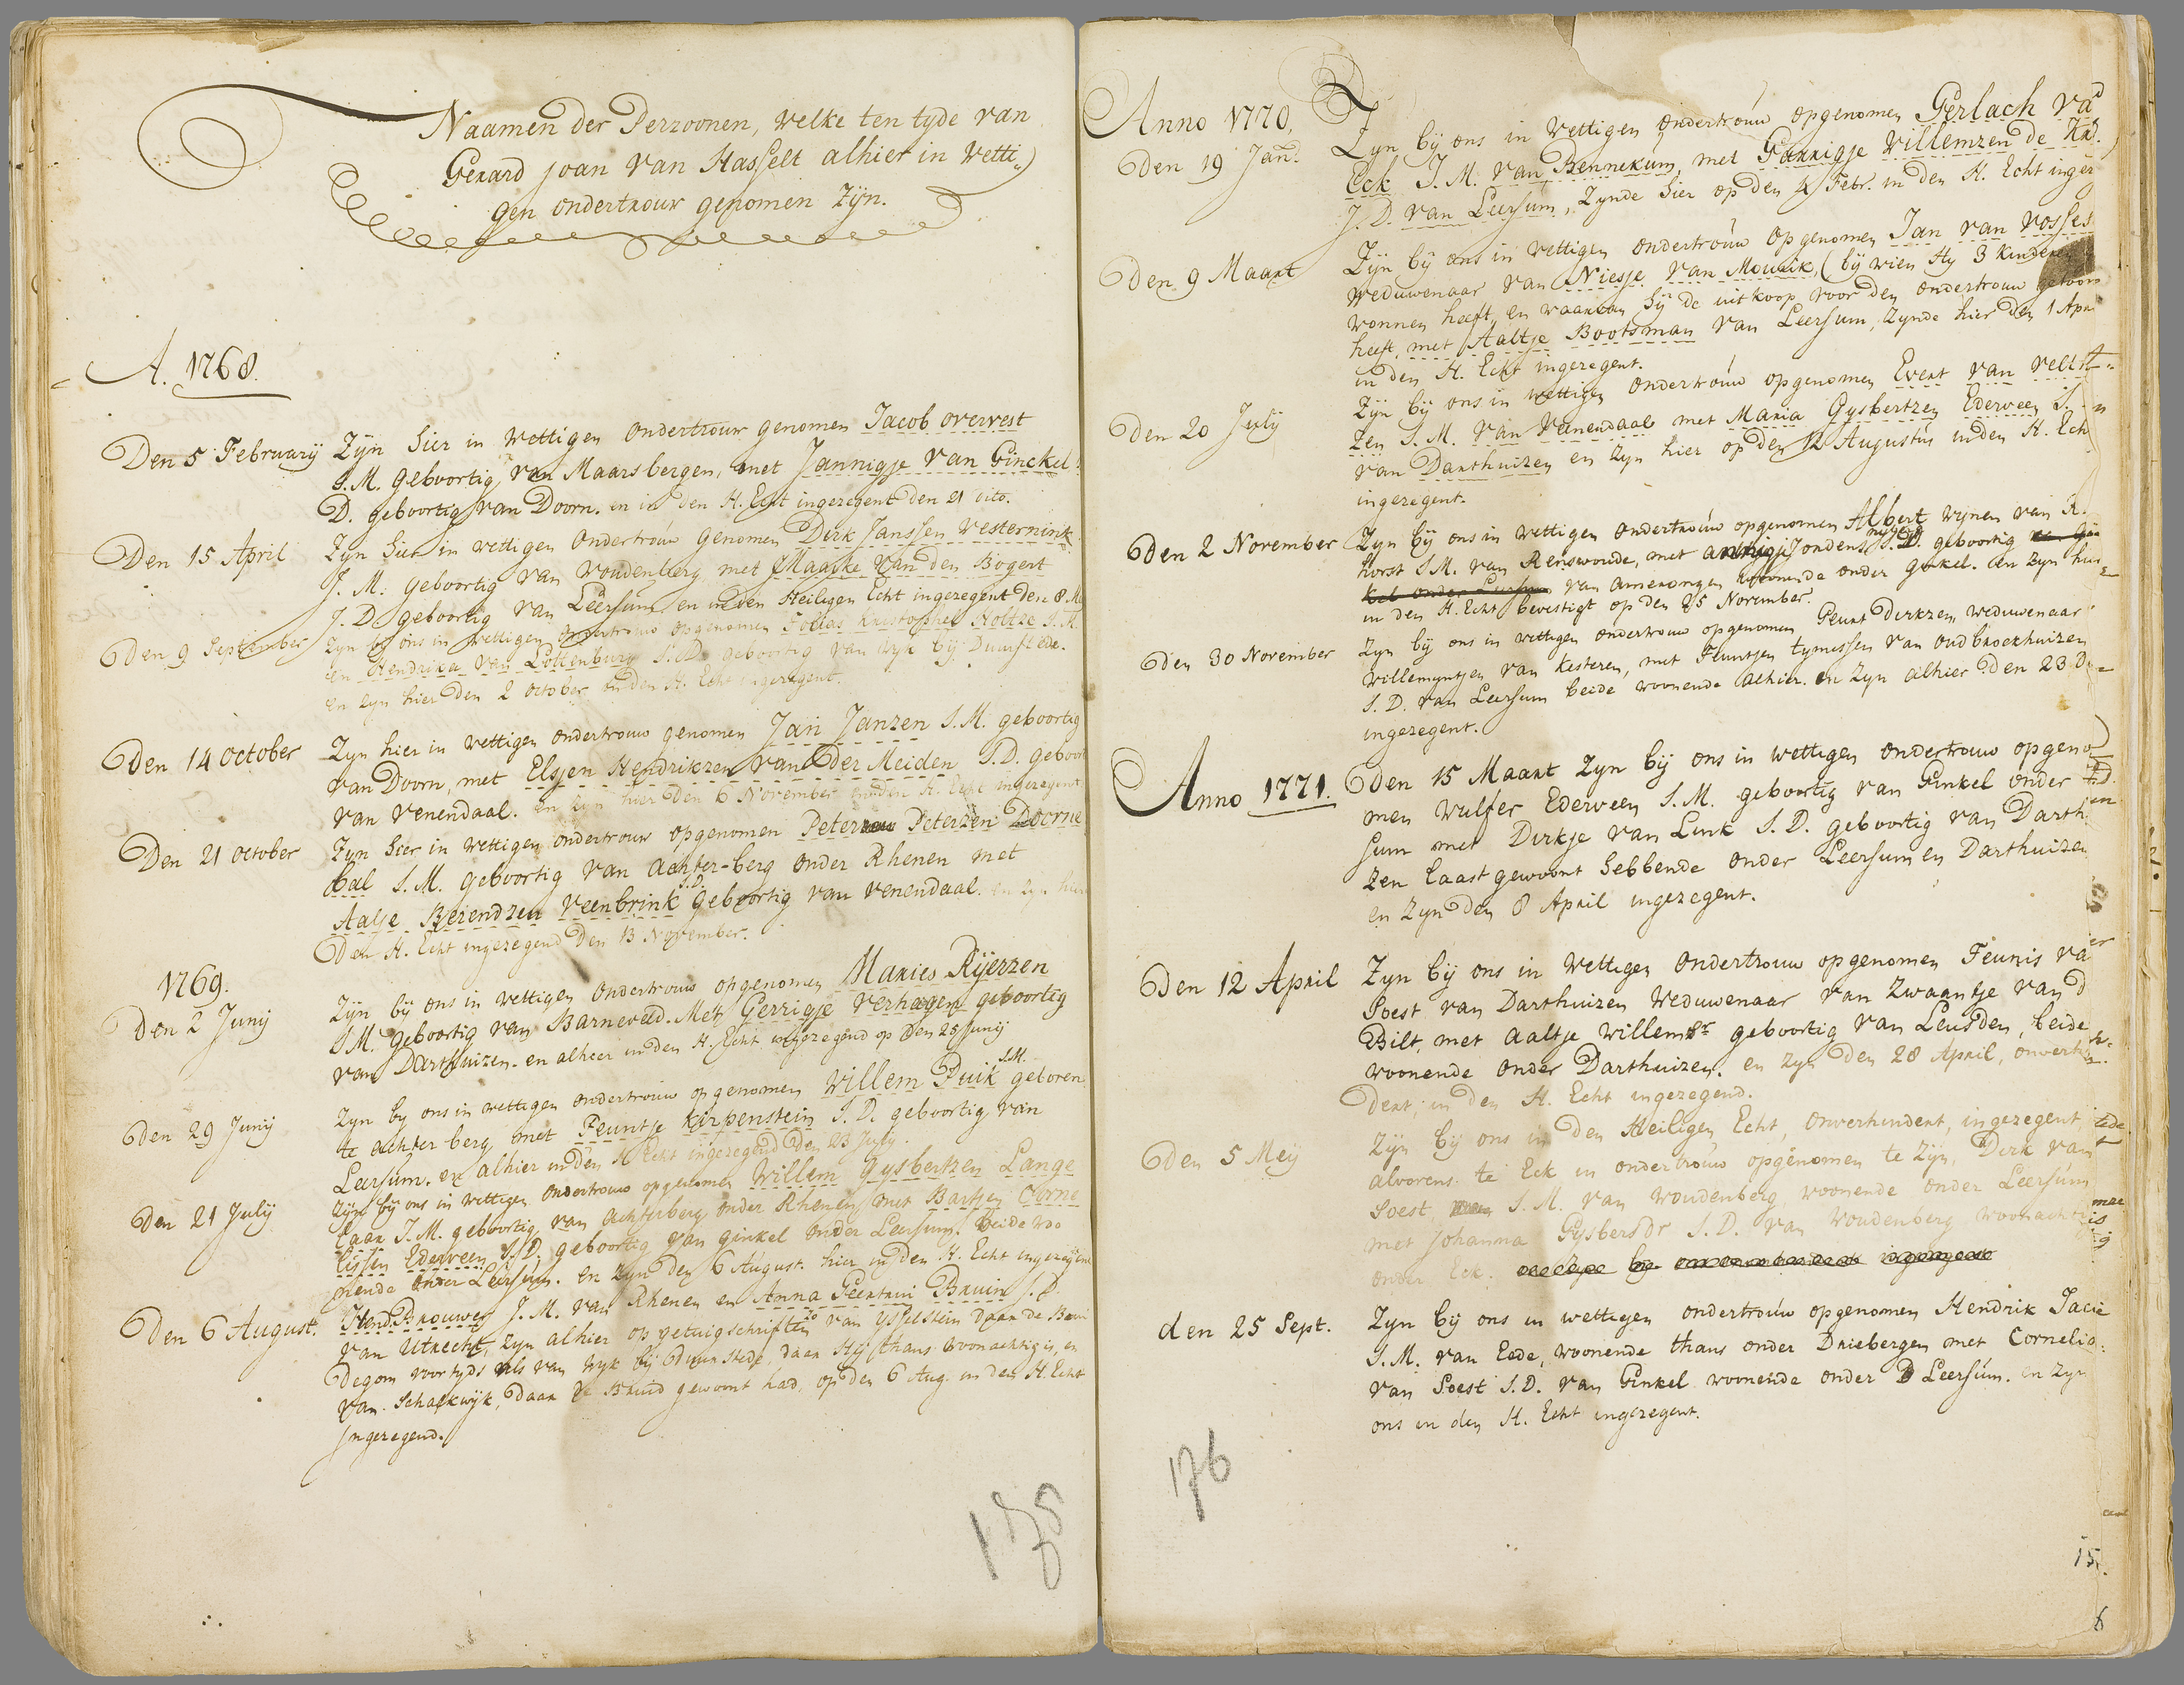 Naamen der Perzoonen, welke ten tyde van
Gerard Joan van Hasselt alhier in Wetti=
gen ondertrouw genomen Zijn.
A. 1768.
Den 5 February Zijn hier in Wettigen ondertrouw genomen Jacob overvest
J.M. Geboortig van Maarsbergen, met Jannigje van Ginckel
D. geboortig van Doorn. en in den H. Echt ingezegent den 21 dito.
Den 15 April Zijn hier in wettigen ondertrouw genomen Dirk Janssen Westernink
J.M. geboortig van Woudenberg met Maatke van den Bogert
J.D. geboortig van Leersum en in den Heiligen Echt ingezegent den 8. M
Den 9 September Zyn bij ons in wettigen ondertrouw opgenomen Tobias Kristophel Holtze J.M.
en Hendrika van Lottenburg J.D. geboortig van Wyk bij Duurstede.
en zyn hier den 2 October in den H. Echt ingezegent.
Den 14 October Zijn hier in wettigen ondertrouw genomen Jan Janzen J.M. geboortig
van Doorn, met Elsjen Hendrikzen van der Meiden J.D. geboort
van Venendaal. en zyn hier den 6 November in den H. Echt ingezegent
Den 21 October Zyn hier in wettigen ondertrouw opgenomen Peter Peterzen Doorne
bal J.M. geboortig van Achter-berg onder Rhenen met
Aalje Berendzen Veenbrink J.D. geboortig van Venendaal. en zyn hier
Den H. Echt ingezegend den 13 November.
1769.
den 2 Junij Zijn bij ons in wettigen ondertrouw opgenomen Maries Rijerzen
J.M. geboortig van Barneveld. Met Gerrigje Verhagen geboortig
van Darthuizen. en alhier in den H. Echt ingezegend op den 25 Junij
den 29 Junij Zyn by ons in wettigen ondertrouw opgenomen Willem Puik J.M. geboren
te achterberg met Teuntje Karpenstein J.D. geboortig van
Leersum. en alhier in den H. Echt ingezegend den 23 July.
den 21 July Zijn bij ons in wettigen ondertrouw opgenomen Willem Gysbertzen Lange
laar J.M. geboortig van achterberg onder Rhenen met Bartjen Corne
lissen Ederveen J.D. geboortig van ginkel onder Leersum. Beide wo
nende onder Leersum. en Zyn den 6 August. hier in den H. Echt ingezegend
Den 6 August. Hend. Brouwer J.M. van Rhenen en Anna Geertrui Bruin J.D.
van Utrecht, Zyn alhier op getuigschriften zo van Ysselstein daar de Brui
degom voortyds als van Wyk bij Duurstede, daar Hij thans woonachtig is, en
van Schalkwijk, daar de Bruid gewoont had, op den 6 Aug. in den H. Echt
Ingezegend.
178
Anno 1770,
Den 19 Jan. Zyn bij ons in Wettigen ondertrouw opgenomen Gerlach va
Eck J.M. van Bennekum, met Gerrigje Willemzen de
J.D. van Leersum, Zynde hier op den 4 Febr. in den H. Echt ingez
Den 9 Maart Zijn bij ons in wettigen ondertrouw opgenomen Jan van Vosses
weduwenaar van Niesje van Mourik, (bij wien Hy 3 kinderen
wonnen heeft, en waarvan hij de uitkoop voor den ondertrouw getoon
heeft, met Aaltje Bootsman van Leersum, Zynde hier den 1 Apr
in den H. Echt ingezegent.
Den 20 July Zijn bij ons in wettigen ondertrouw opgenomen Evert van Velt
zen J.M. van Vanendaal met Maria Gysbertzen Ederveen J.
van Darthuizen en Zyn hier op den 12 Augustus in den H. Ech
ingezegent.
den 2 November Zyn bij ons in wettigen ondertrouw opgenomen Albert Wynen van R.
horst J.M. van Renswoude, met J.D. geboortig
van Amerongen woonende onder Ginkel. en zyn hier
in den H. Echt bevestigt op den 25 November.
den 30 November Zyn bij ons in wettigen ondertrouw opgenomen Geurt Dirkzen weduwenaar
Willemyntjen van Kesteren, met Teuntjen tymessen van oud broekhuizen
J.D. van Leersum beide woonende alhier. en Zyn alhier den 23 D
ingezegent.
Anno 1771. Den 15 Maart Zyn bij ons in wettigen ondertrouw opgeno
men Wulfer Ederveen J.M. geboortig van Ginkel onder
sum met Dirkje van Link J.D. geboortig van Darth
zen laast gewoont hebbende onder Leersum en Darthuizen
en Zyn den 8 April ingezegent.
Den 12 April Zyn bij ons in Wettigen ondertrouw opgenomen Teunis va
Soest van Darthuizen Weduwenaar van Zwaantje van d
Bilt, met Aaltje Willemsr geboortig van Leusden, beide
woonende onder Darthuizen. en Zyn den 28 April, onverhi
dert, in den H. Echt ingezegend.
Den 5 Meij Zijn bij ons in den Heiligen Echt, onverhindert, ingezegent
alvorens te Eck in ondertrouw opgenomen te Zijn, Dirk van
Soest J.M. van Woudenberg woonende onder Leersum
met Johanna Gysbersdr J.D. van Woudenberg woonachtig
onder Eck.
den 25 Sept. Zyn bij ons in wettigen ondertrouw opgenomen Hendrik Jacie
J.M. van Eede, woonende thans onder Driebergen met Cornelia
van Soest J.D. van Ginkel woonende onder Leersum. en Zyn
ons in den H. Echt ingezegent.
176
15